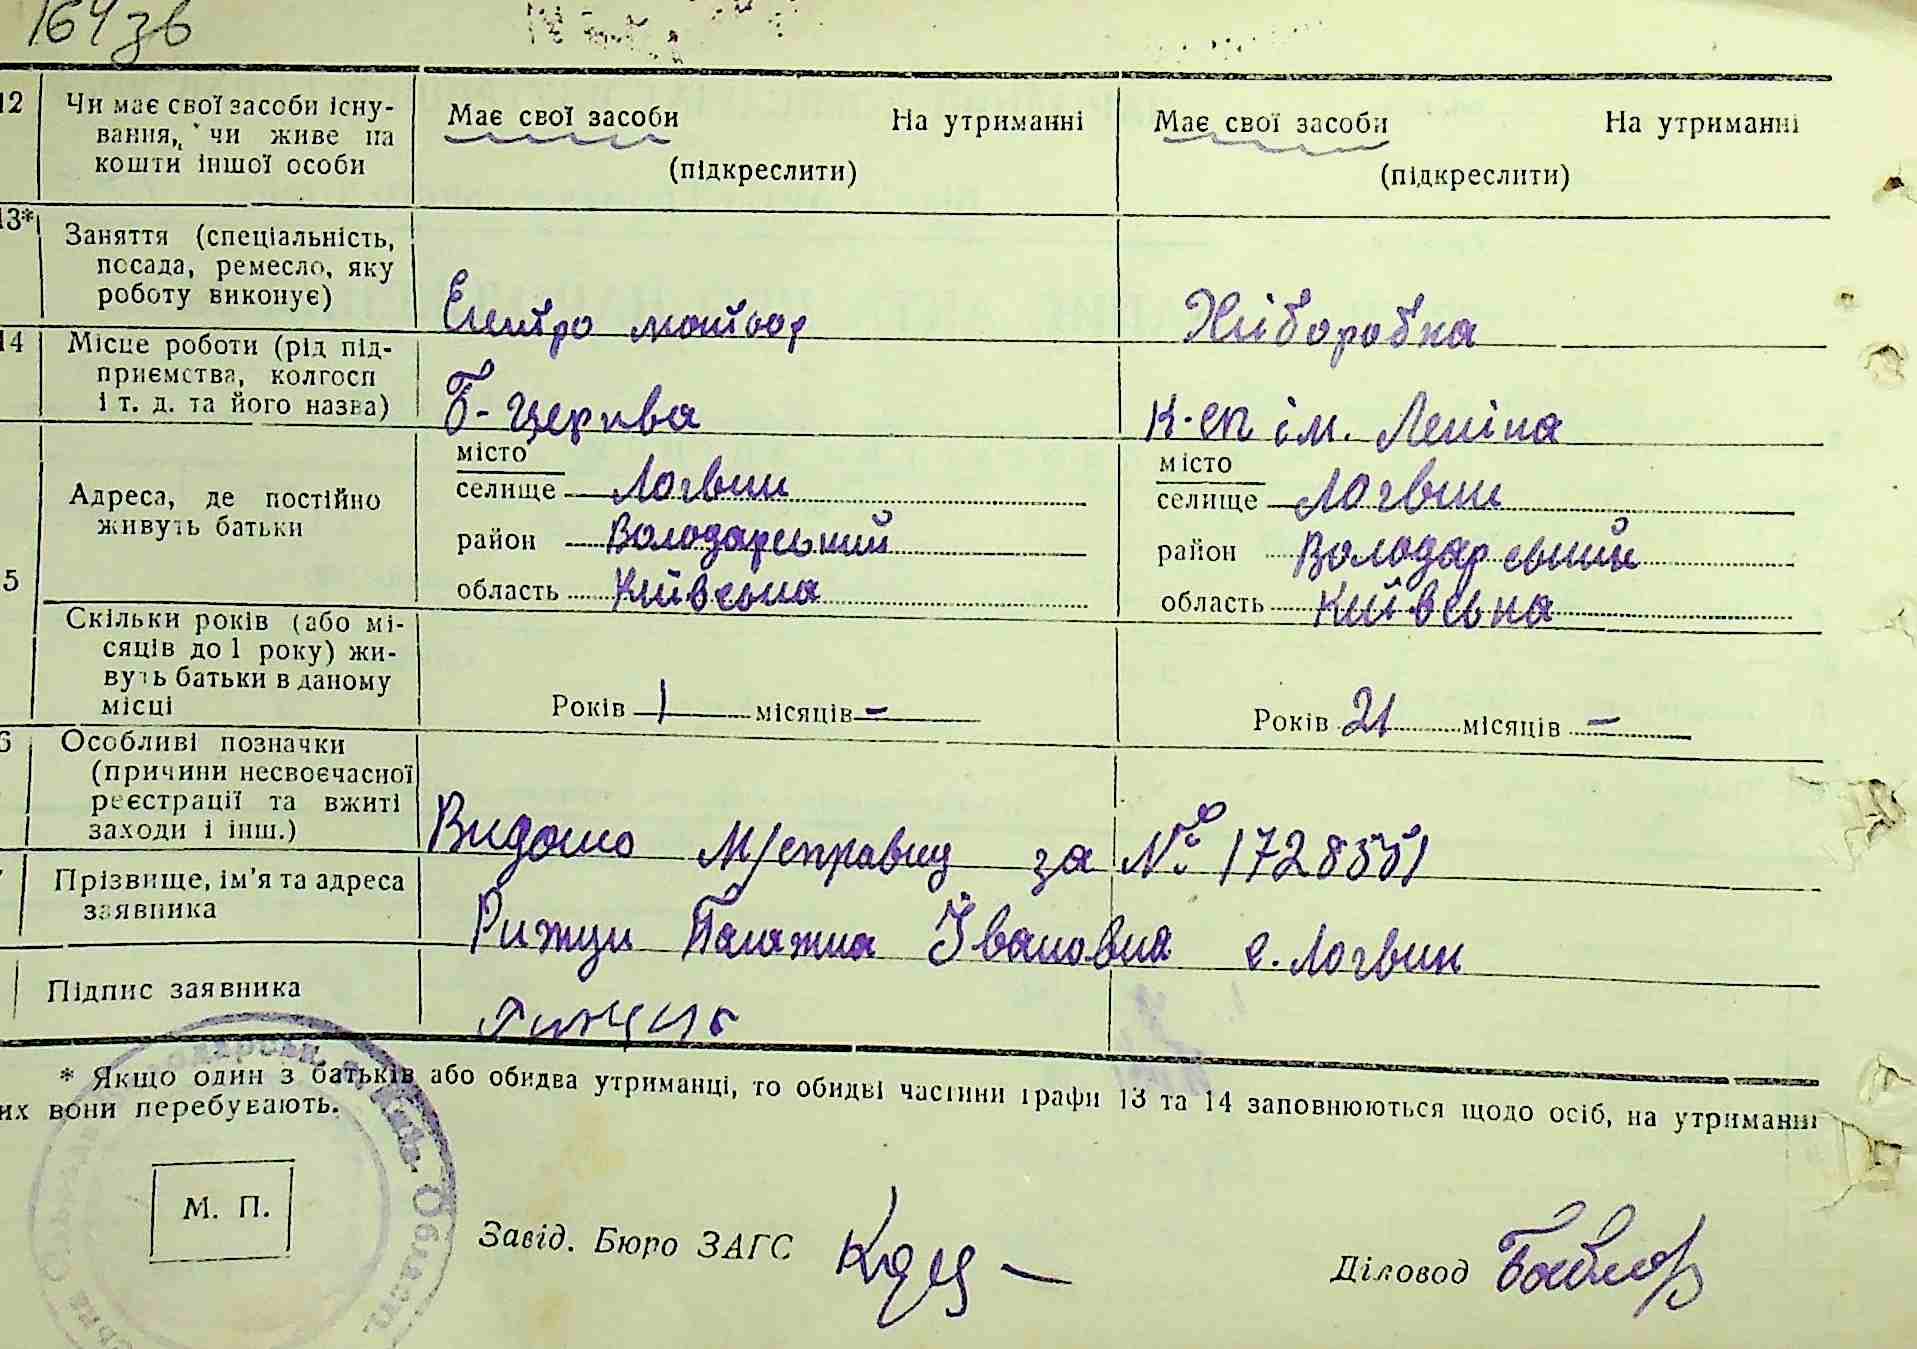 164 зв
12 Чи має свої засоби існу-
вання, чи живе на
кошти іншої особи
Має свої засоби На утриманні
(підкреслити)
Має свої засоби На утриманні
(підкреслити)
13* Заняття (спеціальність,
посада, ремесло, яку
роботу виконує)
Електро монтьор
Хліборобка
14 Місце роботи (рід під-
приємства, колгосп
і т. д. та його назва)
Б-Церква
К-сп ім. Леніна
5
Адреса, де постійно
живуть батьки
місто
селище Логвин
район Володарський
область Київська
місто
селище Логвин
район Володарський
область Київська
Скільки років (або мі-
сяців до 1 року) жи-
вуть батьки в даному
місці
Років 1 місяців –
Років 21 місяців –
6 Особливі позначки
(причини несвоєчасної
реєстрації та вжиті
заходи і інш.)
Видано за № 1728551
Прізвище, ім'я та адреса
заявника
Палажка Івановна с. Логвин
Підпис заявника
* Якщо один з батьків або обидва утриманці, то обидві частини графи 13 та 14 заповнюються щодо осіб, на утриманні
их вони перебувають.
М. П.
Завід. Бюро ЗАГС
Діловод